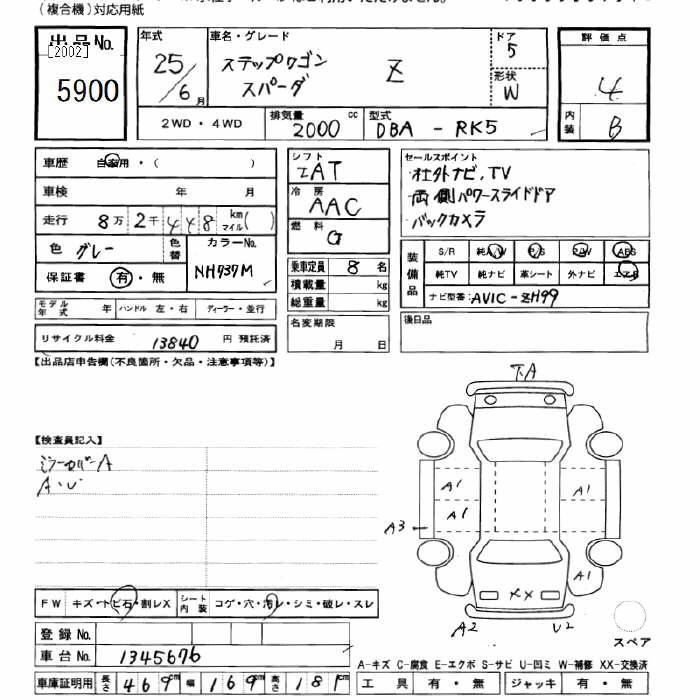 (複合機)対応用紙
出品No.
[2002]
5900
年式
25/6月
車名・グレード
ステップワゴン
スパーダ
Z
ドア
5
形状
W
評価点
4
内装
B
2WD・4WD
排気量
2000
cc
型式
DBA - RK5
車歴 自家用・( )
車検 年 月
走行 8万2千448 km マイル( )
色 グレー
色替
カラーNo.
NH737M
保証書 有・無
シフト
IAT
冷房
AAC
燃料
G
乗車定員 8 名
積載量 kg
総重量 kg
セールスポイント
・社外ナビ、TV
・両側パワースライドドア
・バックカメラ
装備品
S/R 純A/W P/S P/W ABS
純TV 純ナビ 革シート 外ナビ エアB
ナビ型番: AVIC-ZH99
モデル年式 年 ハンドル 左・右 ディーラー・並行
リサイクル料金 13840 円 預託済
名変期限
月 日
後日品
【出品店申告欄(不良箇所・欠品・注意事項等)】
【検査員記入】
ミラーカバーA
A・U
下A
A1
A1
A1
A3
A1
XX
A2
U2
スペア
FW キズ・トビ石・割レX
シート内装 コゲ・穴・汚レ・シミ・破レ・スレ
登録No.
車台No. 1345676
車庫証明用 長さ 469cm 幅 169cm 高さ 181cm
A-キズ C-腐食 E-エクボ S-サビ U-凹ミ W-補修 XX-交換済
工具 有・無 ジャッキ 有・無